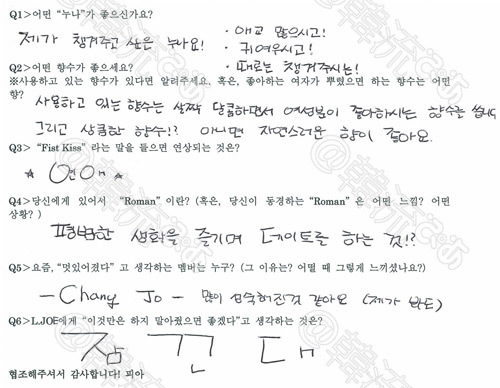 Q1>어떤 “누나”가 좋으신가요?
제가 챙겨주고 싶은 누나요!
· 애교 많으시고!
· 귀여우시고!
· 때로는 챙겨주시는!
Q2>어떤 향수가 좋으세요?
※사용하고 있는 향수가 있다면 알려주세요. 혹은, 좋아하는 여자가 뿌렸으면 하는 향수는 어떤
향?
사용하고 있는 향수는 살짝 달콤하면서 여성분이 좋아하시는 향수를 씁니다
그리고 상큼한 향수!? 아니면 자연스러운 향이 좋아요.
Q3> “Fist Kiss” 라는 말을 들으면 연상되는 것은?
Q4>당신에게 있어서 “Roman” 이란? (혹은, 당신이 동경하는 “Roman” 은 어떤 느낌? 어떤
상황? )
평범한 생활을 즐기며 데이트를 하는 것!?
Q5>요즘, “멋있어졌다” 고 생각하는 멤버는 누구? (그 이유는? 어떨 때 그렇게 느끼셨나요?)
— Chang Jo — 많이 성숙해진것 같아요 (제가 봐도)
Q6>L.JOE에게 “이것만은 하지 말아줬으면 좋겠다”고 생각하는 것은?
잠 꼬 대
협조해주셔서 감사합니다! 피아
@韓流ぴあ
@韓流ぴあ
@韓流ぴあ